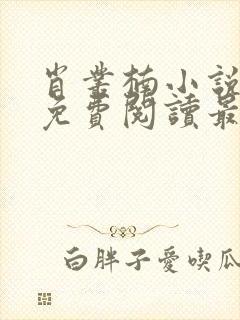 肖業楠小說
免費閱讀最
白胖子愛喫瓜